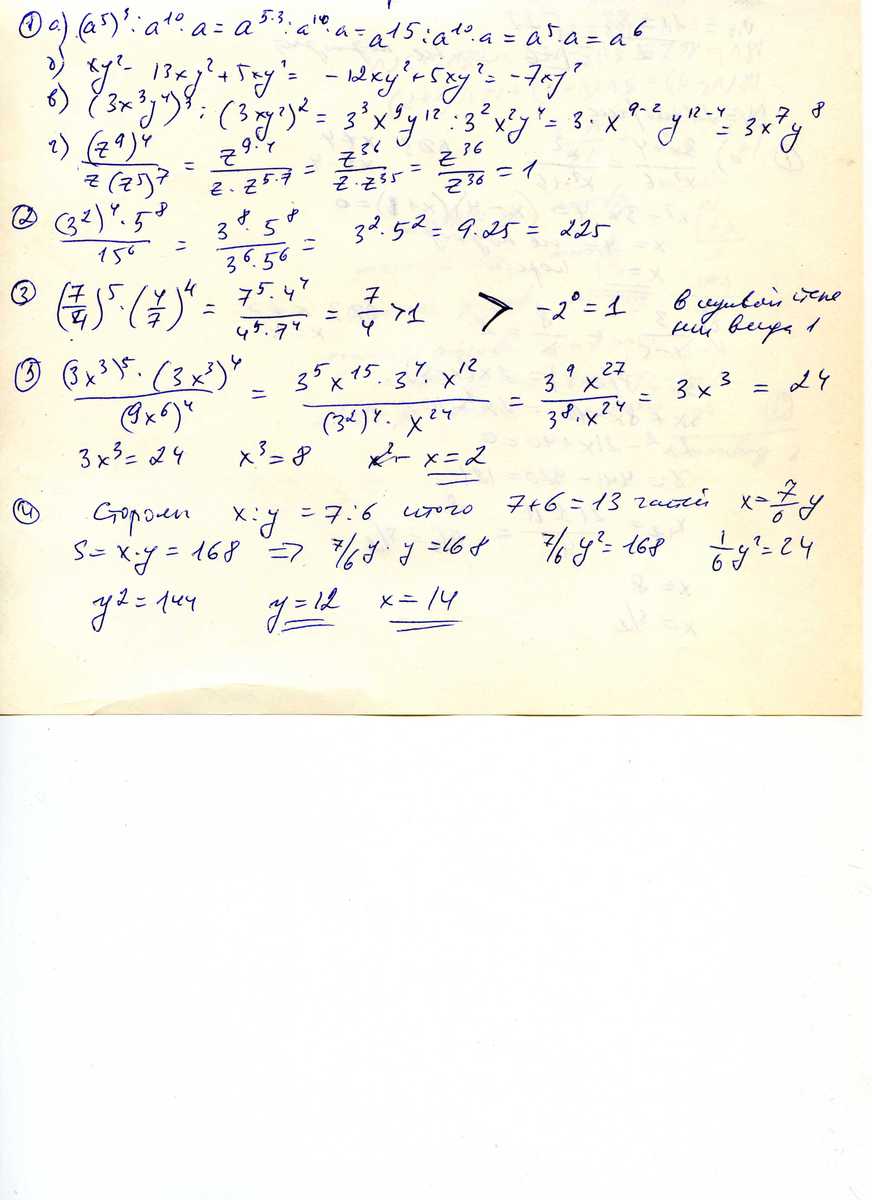 ① а) (a⁵)³ : a¹⁰ · a = a⁵·³ : a¹⁰ · a = a¹⁵ : a¹⁰ · a = a⁵ · a = a⁶
б) xy² - 13xy² + 5xy² = -12xy² + 5xy² = -7xy²
в) (3x³y⁴)³ : (3xy²)² = 3³x⁹y¹² : 3²x²y⁴ = 3 · x⁹⁻²y¹²⁻⁴ = 3x⁷y⁸
г) (z⁹)⁴ / z(z⁵)⁷ = z⁹·⁴ / z · z⁵·⁷ = z³⁶ / z · z³⁵ = z³⁶ / z³⁶ = 1
② (3²)⁴ · 5⁸ / 15⁶ = 3⁸ · 5⁸ / 3⁶ · 5⁶ = 3² · 5² = 9 · 25 = 225
③ (7/4)⁵ · (4/7)⁴ = 7⁵ · 4⁴ / 4⁵ · 7⁴ = 7/4 > 1 > -2⁰ = 1 в нулевой степе
нии всегда 1
⑤ (3x³)⁵ · (3x³)⁴ / (9x⁶)⁴ = 3⁵x¹⁵ · 3⁴ · x¹² / (3²)⁴ · x²⁴ = 3⁹x²⁷ / 3⁸ · x²⁴ = 3x³ = 24
3x³ = 24 x³ = 8 x = 2
④ Стороны x : y = 7 : 6 итого 7+6 = 13 частей x = 7/6 y
S = x · y = 168 => 7/6 y · y = 168 7/6 y² = 168 1/6 y² = 24
y² = 144 y = 12 x = 14